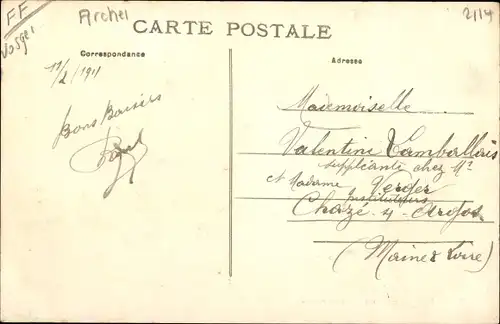 FF
Vosges
Archel
2114
CARTE POSTALE
Correspondance
Adresse
11/2/1911
Bons Baisers
Mademoiselle
Valentine Camballais
suppléante chez Mr
et Madame Verger
Instituteurs
Chazé-s-Argos
(Maine & Loire)